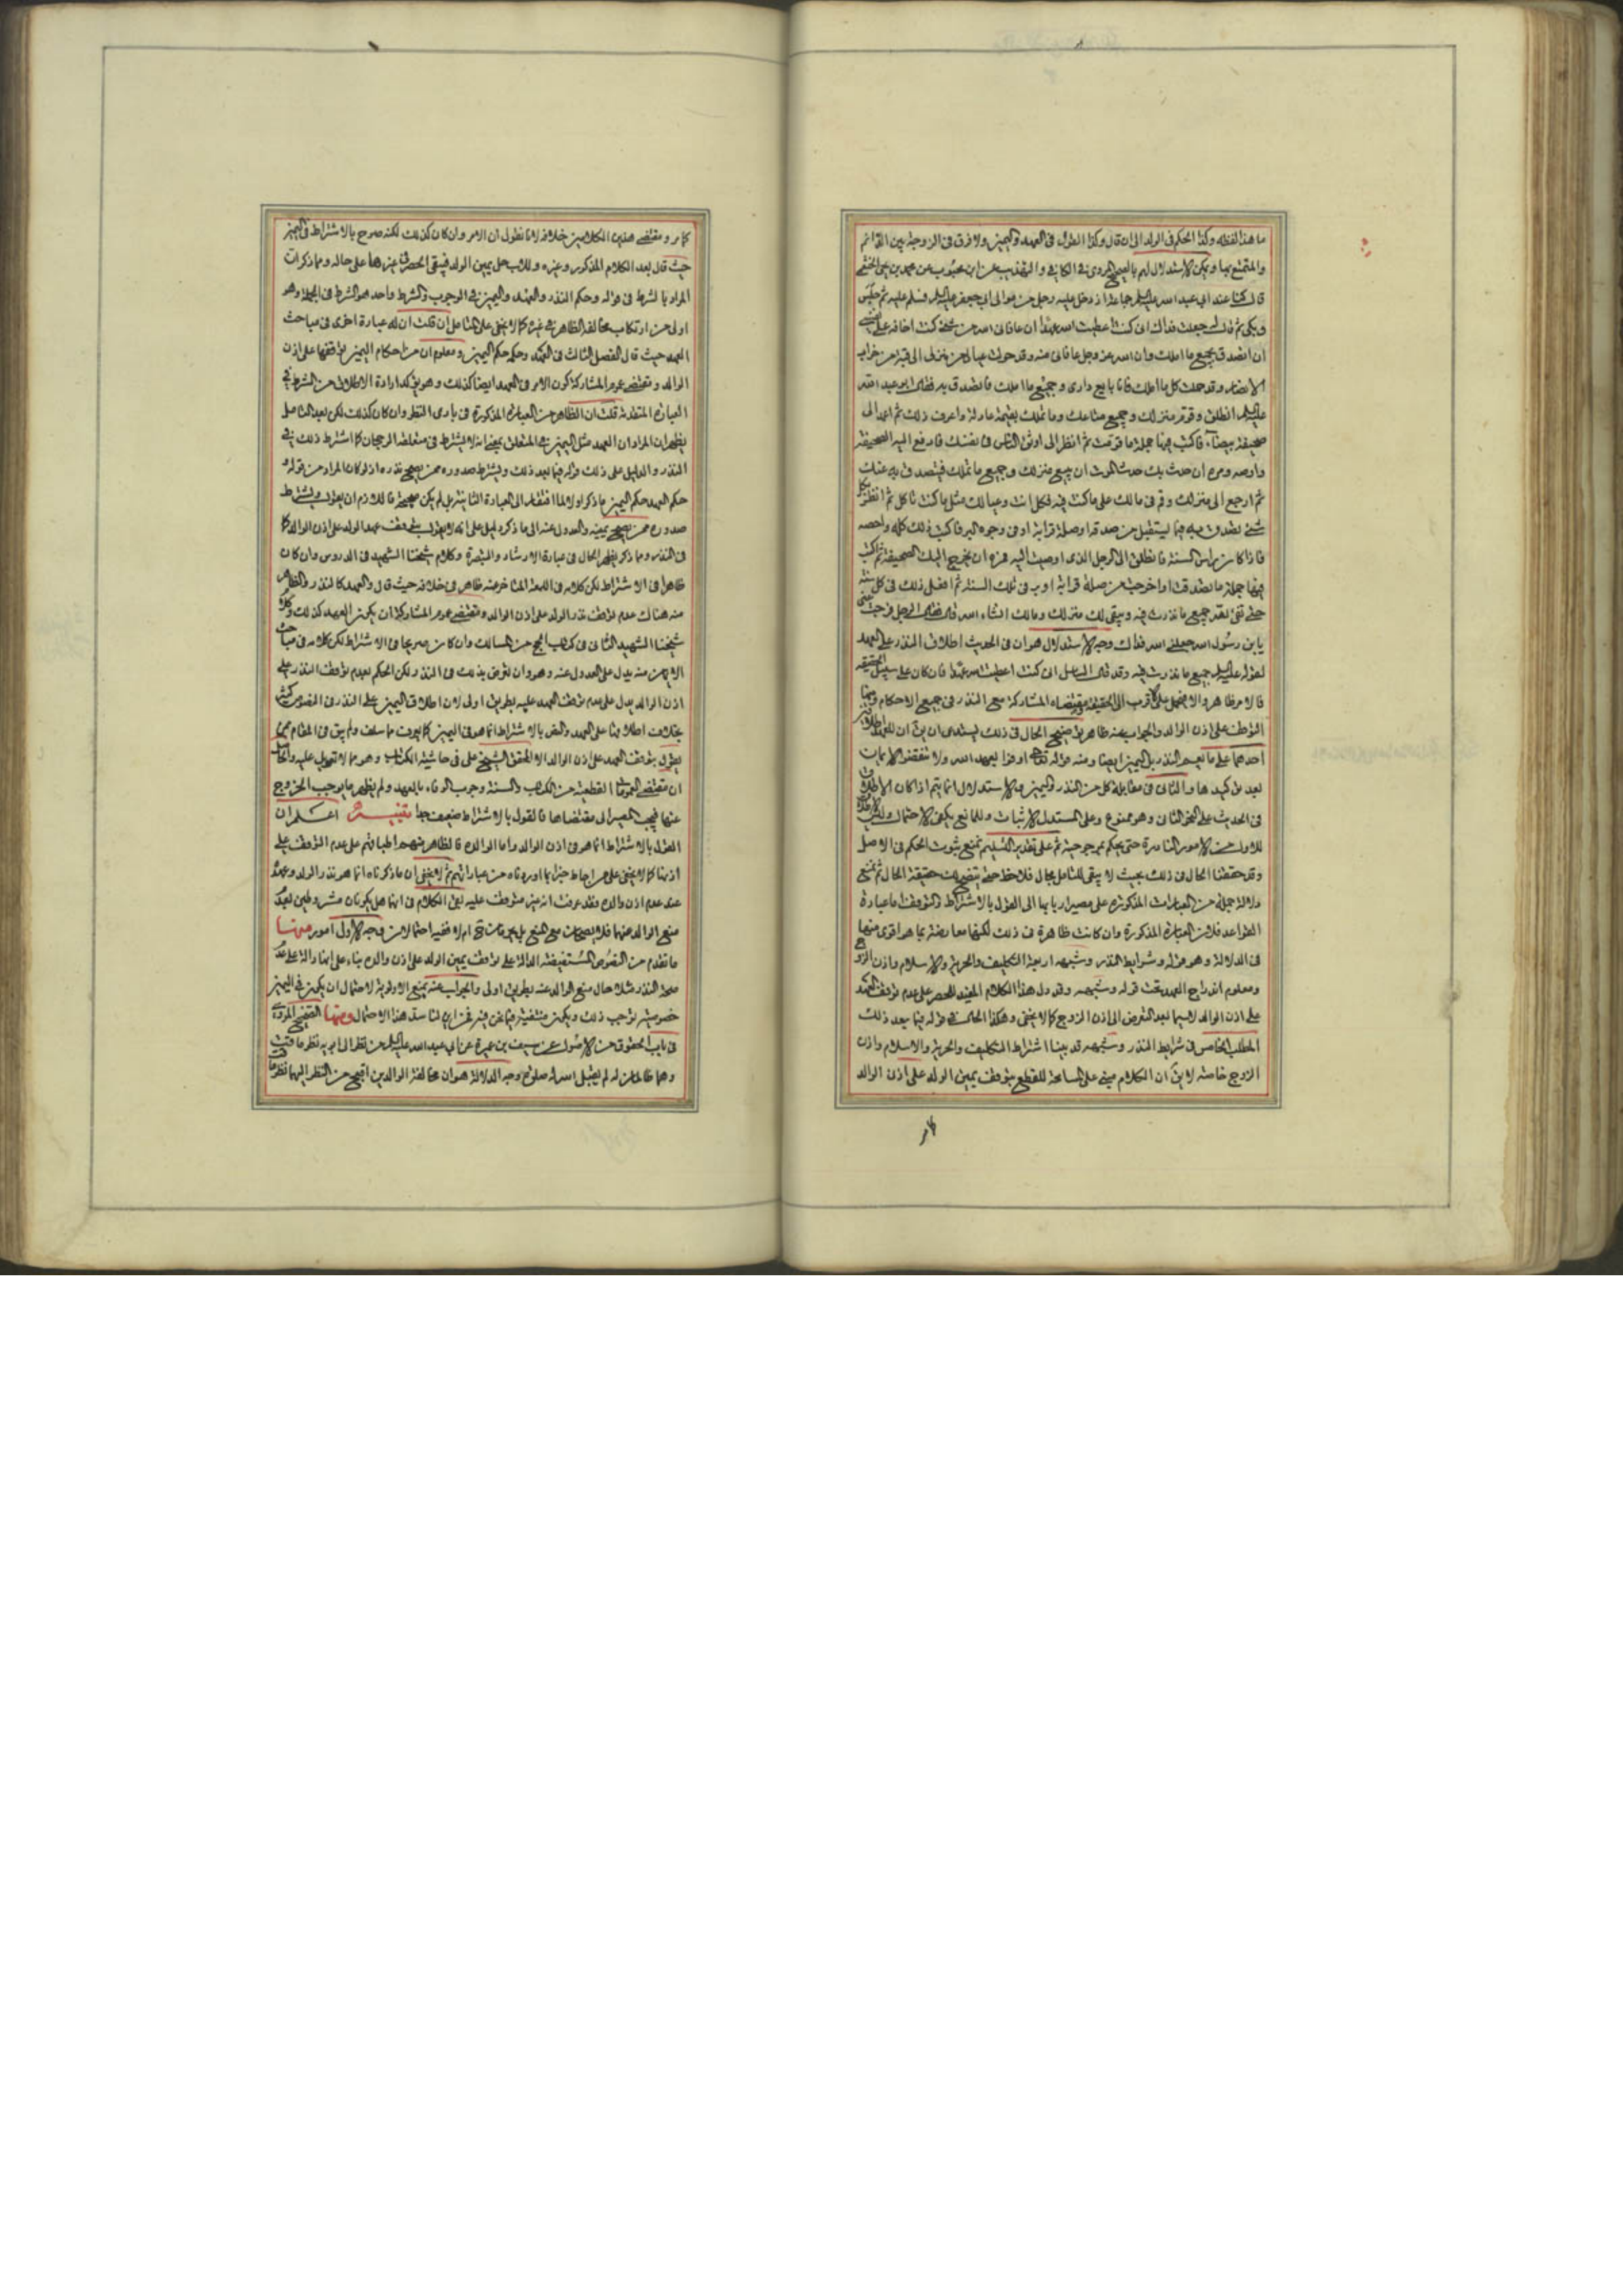 ما هذا لفظه وكذا الحكم في الولد الى ان قال وكذا القول في العهد واليمين ولا فرق في الزوجة بين الدائم
والمتمتع بها ويمكن الاستدلال لهم بالصحيح المروي في الكافي والتهذيب عن ابن محبوب عن محمد بن يحيى الخثعمي
قال كنا عند ابي عبد الله عليه السلم جماعة اذ دخل عليه رجل من موالى ابي جعفر عليه السلم فسلم عليه ثم جلس
وبكى ثم قال له جعلت فداك اني كنت اعطيت الله عهدا ان عافاني الله من شئ كنت اخافه على نفسي
ان اتصدق بجميع ما املك وان الله عز وجل عافاني منه وقد حولت عيالي من منزلي الى قبة من خراب
الانصار وقد حملت كل ما املك فانا بايع داري وجميع ما املك فاتصدق به فقال ابو عبد الله
عليه السلم انطلق وقوم منزلك وجميع متاعك وما تملك بقيمة عادلة واعرف ذلك ثم اعمد الى
صحيفة بيضاء فاكتب فيها جملة ما قومت ثم انظر الى اوثق الناس في نفسك فادفع اليه الصحيفة
واوصه ومره ان حدث بك حدث الموت ان يبيع منزلك وجميع ما تملك فيتصدق به عنك
ثم ارجع الى منزلك وقم في مالك على ما كنت فيه فكل انت وعيالك مثل ما كنت تاكل ثم انظر كل
شئ تصدق به فيما يستقبل من صدقة او صلة قرابة او في وجوه البر فاكتب ذلك كله واحصه
فاذا كان راس السنة فانطلق الى الرجل الذي اوصيت اليه فمره ان يخرج اليك الصحيفة ثم اكتب
فيها جملة ما تصدقت واخرجت من صلة قرابة او بر في تلك السنة ثم افعل ذلك في كل سنة
حتى تفى لله بجميع ما نذرت فيه ويبقى لك منزلك ومالك انشاء الله قال فقال الرجل فرجت عني
يابن رسول الله جعلني الله فداك وجه الاستدلال هو ان في الحديث اطلاق النذر على العهد
لقوله عليه السلم جميع ما نذرت فيه وقد قال السائل اني كنت اعطيت الله عهدا فان كان على سبيل الحقيقة
فالامر ظاهر والا فيحمل على اقرب الى الحقيقة ومقتضاه المشاركة مع النذر في جميع الاحكام ومنها
التوقف على اذن الوالد والجواب عنه ظاهر توضيح الحال في ذلك يستدعى ان يق ان للعهد اطلاقين
احدهما على ما يعم النذر بل اليمين ايضا ومنه قوله تعالى اوفوا بعهد الله ولا تنقضوا الايمان
بعد توكيدها والثاني في مقابلة كل من النذر واليمين والاستدلال انما يتم اذا كان الاطلاق
في الحديث على النحو الثاني وهو ممنوع وعلى المستدل الاثبات وللمانع يكفى الاحتمال وليس الاطلاق
للاول من الامور النادرة حتى يحكم بمرجوحيته ثم على تقدير التسليم نمنع ثبوت الحكم في الاصل
وقد حققنا الحال في ذلك بحيث لا يبقى للتامل مجال فلاحظ حتى يتضح لك حقيقة الحال ثم نمنع
دلالة جملة من العبارات المذكورة على مصير اربابها الى القول بالاشتراط والتوقف اما عبارة
القواعد فلان العبارة المذكورة وان كانت ظاهرة في ذلك لكنها معارضة بما هو اقوى منها
في الدلالة وهو قوله وشرايط النذر وشبهه اربعة التكليف والحرية والاسلام واذن الزوج
ومعلوم اندراج العهد تحت قوله وشبهه وقد دل هذا الكلام المفيد للحصر على عدم توقف العهد
على اذن الوالد لاسيما بعد التعرض الى اذن الزوج كما لا يخفى وهكذا الحال في قوله فيما بعد ذلك
المطلب الخامس في شرايط النذر وشبهه قد بينا اشتراط التكليف والحرية والاسلام واذن
الزوج خاصة لا يق ان الكلام مبنى على المسامحة للقطع بتوقف يمين الولد على اذن الوالد
كما مر
كما مر ومقتضى هذين الكلامين خلافه لانا نقول ان الامر وان كان كذلك لكنه صرح بالاشتراط في اليمين
حيث قال بعد الكلام المذكور وغيره وللاب حل يمين الولد فيبقى الحصر في غيرها على حاله ومما ذكرات
المراد بالشرط في قوله وحكم النذر والعهد واليمين في الوجوب والشرط واحد هو الشرط في الجملة وهو
اولى من ارتكاب مخالفة الظاهر في غيره كما لا يخفى على المتامل ان قلت ان له عبارة اخرى في مباحث
العهد حيث قال الفصل الثالث في العهد وحكمه حكم اليمين ومعلوم ان من احكام اليمين توقفها على اذن
الوالد ومقتضى عموم المشاركة كون الامر في العهد ايضا كذلك وهو يؤكد ارادة الاطلاق من الشرط في
العبارة المتقدمة قلت ان الظاهر من العبارة المذكورة في بادى النظر وان كان كذلك لكن بعد التامل
يظهر ان المراد ان العهد مثل اليمين في المتعلق بمعنى انه لا يشترط في متعلقه الرجحان كما اشترط ذلك في
النذر والدليل على ذلك قوله فيما بعد ذلك ويشترط صدوره ممن يصح نذره اذ لو كان المراد من قوله و
حكم العهد حكم اليمين ما ذكر اولا لما افتقر الى العبارة الثانية بل لم يكن صحيحة فاللازم ان يقول ويشترط
صدوره ممن يصح يمينه والعدول عنه الى ما ذكر دليل على انه لا يقول بتوقف عهد الولد على اذن الوالد كما
في النذر ومما ذكر يظهر الحال في عبارة الارشاد والتبصرة وكلام شيخنا الشهيد في الدروس وان كان
ظاهرا في الاشتراط لكن كلامه في اللمعة المتاخر عنه ظاهر في خلافه حيث قال والعهد كالنذر والظاهر
منه هناك عدم توقف نذر الولد على اذن الوالد ومقتضى عموم المشاركة ان يكون العهد كذلك وكلام
شيخنا الشهيد الثاني في كتاب الحج من المسالك وان كان صريحا في الاشتراط لكن كلامه في مباحث
الايمان منه يدل على العدول عنه وهو وان تعرض بذلك في النذر ولكن الحكم بعدم توقف النذر على
اذن الوالد يدل على عدم توقف العهد عليه بطريق اولى لان اطلاق اليمين على النذر في النصوص كثير
بخلاف اطلاقها على العهد والنص بالاشتراط انما هو في اليمين كما عرفت مما سلف ولم يبق في المقام ممن
يقول بتوقف العهد على اذن الوالد الا المحقق الشيخ على في حاشية الكتاب وهو مما لا تعويل عليه والحاصل
ان مقتضى العمومات القطعية من الكتاب والسنة وجوب الوفاء بالعهد ولم يظهر ما يوجب الخروج
عنها فيجب المصير الى مقتضاها فالقول بالاشتراط ضعيف جدا تنبيه اعلم ان
القول بالاشتراط انما هو في اذن الوالد واما الوالدة فالظاهر منهم اطباقهم على عدم التوقف على
اذنها كما لا يخفى على من احاط خبرا بما اوردناه من عباراتهم ثم لا يخفى ان ما ذكرناه انما هو نذر الولد وعهده
عند عدم اذن والده وقد عرفت انه غير متوقف عليه بقى الكلام في انهما هل يكونان مشروطين بعدم
منع الوالد عنهما فلا يصحان مع المنع بل يحرمان ح ام لا ففيه احتمالان وجه الاول امور منها
ما تقدم من النصوص المستفيضة الدالة على توقف يمين الولد على اذن والده بناء على انها دالة على عدم
صحة النذر مثلا حال منع الوالد عنه بطريق اولى والجواب عنه بمنع الاولوية لاحتمال ان يكون في اليمين
خصوصية توجب ذلك ويكون منتفية فيما نحن فيه فمن اين لنا سد هذا الاحتمال ومنها الصحيح المروي
في باب العقوق من الاصول عن سيف بن عميرة عن ابي عبد الله عليه السلم من نظر الى ابويه نظر ماقت
وهما ظالمان له لم يقبل الله له صلوة وجه الدلالة هو ان مخالفة الوالدين اقبح من النظر اليهما نظر ماقت